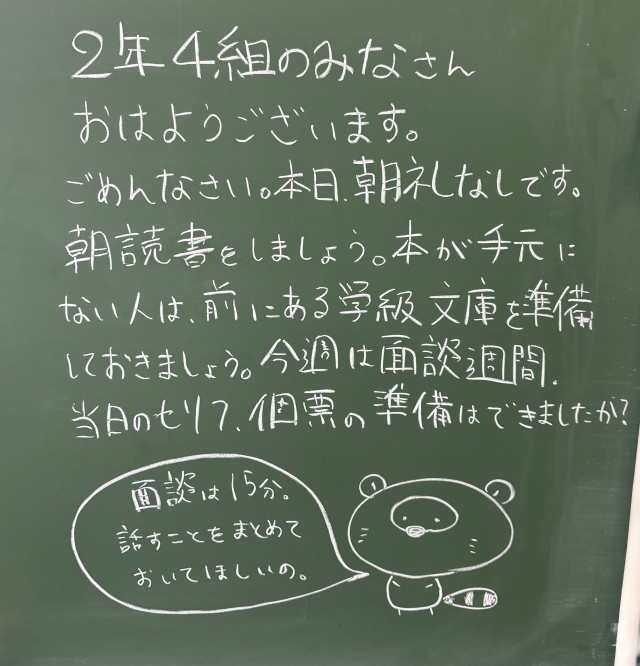 2年4組のみなさん
おはようございます。
ごめんなさい。本日、朝礼なしです。
朝読書をしましょう。本が手元に
ない人は、前にある学級文庫を準備
しておきましょう。今週は面談週間、
当日のセリフ、個票の準備はできましたか?
面談は15分。
話すことをまとめて
おいてほしいの。